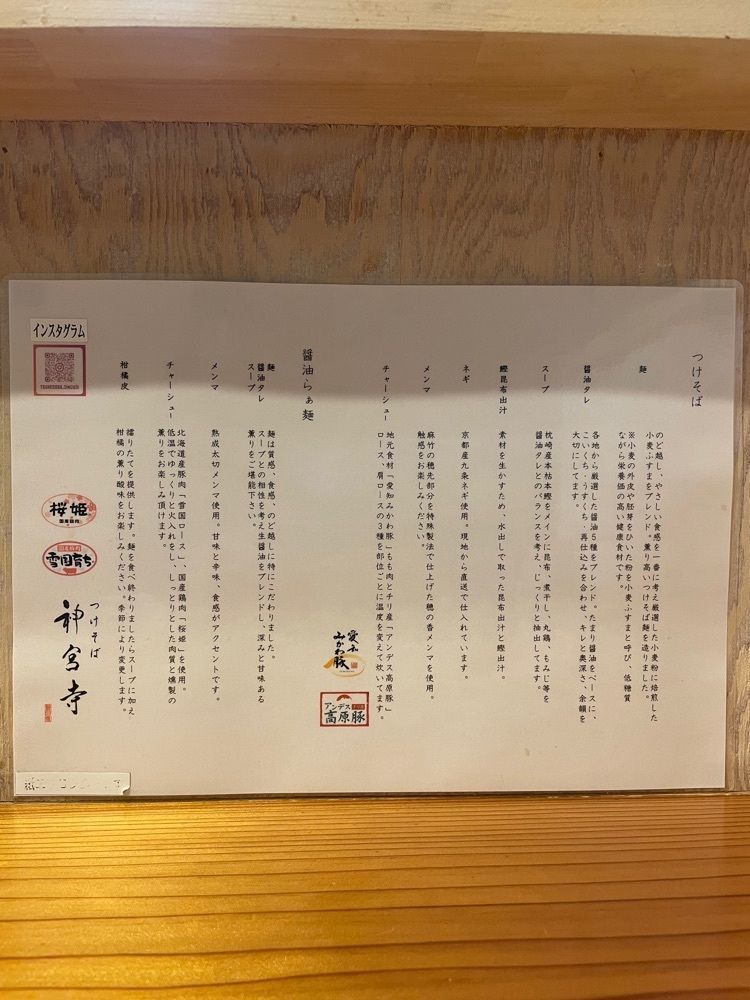 つけそば
麺
のど越し、やさしい食感を一番に考え厳選した小麦粉に焙煎した
小麦ふすまをブレンド。薫り高いつけそば麺を造りました。
※小麦の外皮や胚芽をひいた粉を小麦ふすまと呼び、低糖質
ながら栄養価の高い健康食材です。
醤油タレ
各地から厳選した醤油5種をブレンド。たまり醤油をベースに、
こいくち・うすくち・再仕込みを合わせ、キレと奥深さ、余韻を
大切にしてます。
スープ
枕崎産本枯本鰹をメインに昆布、煮干し、丸鶏、もみじ等を
醤油タレとのバランスを考え、じっくりと抽出してます。
鰹昆布出汁
素材を生かすため、水出しで取った昆布出汁と鰹出汁。
ネギ
京都産九条ネギ使用。現地から直送で仕入れています。
メンマ
麻竹の穂先部分を特殊製法で仕上げた穂の香メンマを使用。
触感をお楽しみください。
チャーシュー
地元食材「愛知みかわ豚」もも肉とチリ産「アンデス高原豚」
ロース、肩ロースの3種を部位ごとに温度を変えて炊いてます。
愛とん
みかわ豚
アンデス
高原豚
醤油らぁ麺
麺
麺は質感、食感、のど越しに特にこだわりました。
醤油タレ
スープ
スープとの相性を考え生醤油をブレンドし、深みと甘味ある
薫りをご堪能下さい。
メンマ
熟成太切メンマ使用。甘味と辛味、食感がアクセントです。
チャーシュー
北海道産豚肉「雪国ロース」、国産鶏肉「桜姫」を使用。
低温でゆっくりと火入れをし、しっとりとした肉質と燻製の
薫りをお楽しみ頂けます。
柑橘皮
擂りたてを提供します。麺を食べ終わりましたらスープに加え
柑橘の薫り酸味をお楽しみください。季節により変更します。
インスタグラム
桜姫
国産鶏肉
雪国育ち
つけそば
神宮寺